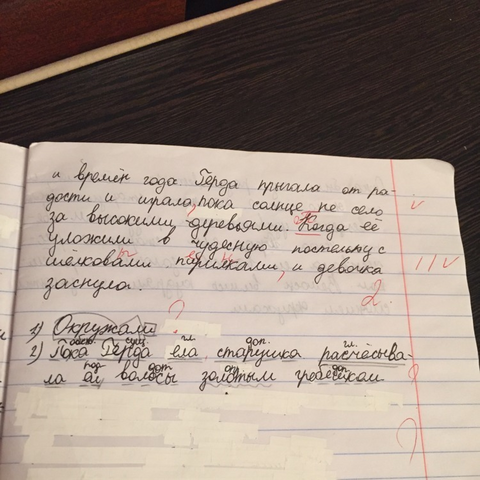 и времён года Герда прыгала от ра-
дости и играла, пока солнце не село
за высокими деревьями. Когда её
уложили в чудесную постельку с
шёлковами перинками, и девочка
заснула.
2
?
1) Окружами
обст. сущ. гл. доп. гл.
2) Пока Герда ела, старушка расчёсыва-
ла ей волосы золотым гребешком
?